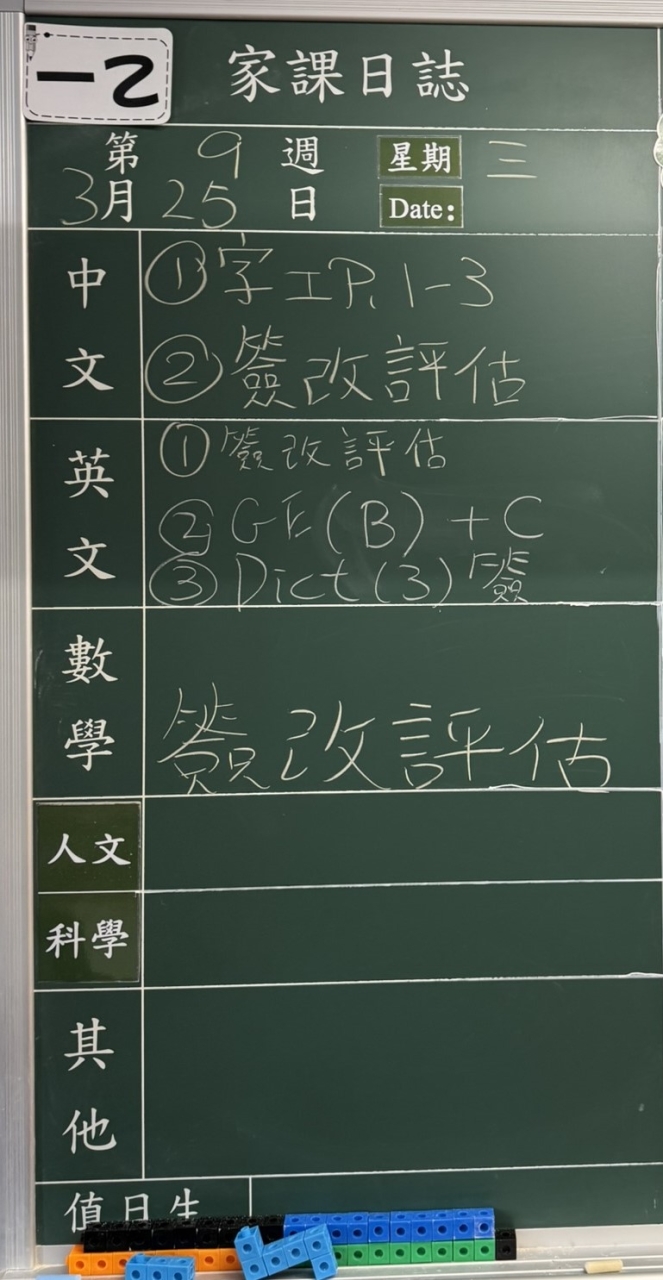 一乙
家課日誌
第 9 週 星期 三
3月 25 日 Date:
中文
①字工P.1-3
②簽改評估
英文
①簽改評估
②GE(B)+C
③Dict(3)簽
數學
簽改評估
人文
科學
其他
值日生